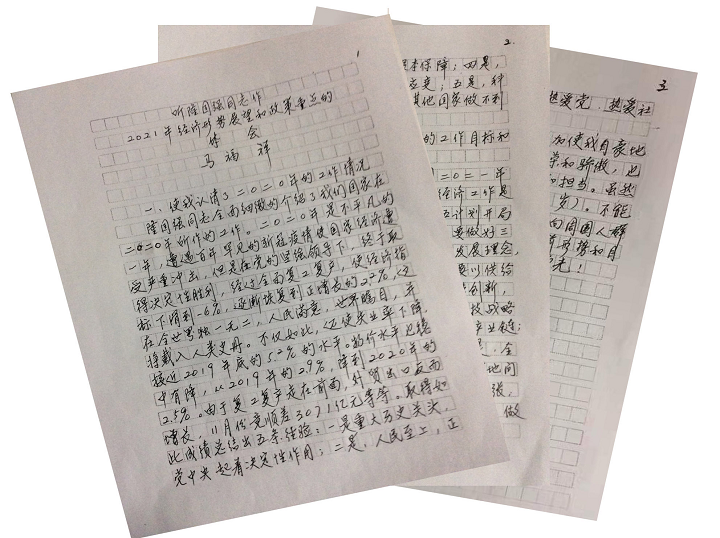 1
听隆国强同志作
2021年经济形势展望和政策重点的
体会
马福祥
一、使我认清了二〇二〇年的工作情况
隆国强同志全面细微的介绍了我们国家在
二〇二〇年所作的工作。二〇二〇年是不平凡的
一年，遭遇百年罕见的新冠疫情使国家经济遭
受严重冲击，但是在党的坚强领导下，终于取
得决定性胜利，经过全面复工复产，使经济指
标下滑到-6%，逐渐恢复到正增长的2.2%，这
在全世界独一无二，人民满意，世界瞩目，并
将载入人类史册。不仅如此，还使失业率下降，
接近2019年底的5.2%的水平。物价水平也稳
中有降，从2019年的2.9%，降到2020年的
2.5%。由于复工复产走在前面，外贸出口反而
增长，11月份竟顺差3071亿元等等。取得如
此成绩总结出五条经验：一是重大历史关头，
党中央起着决定性作用；二是，人民至上，正
2.
本保障；四是，
应变；五是，科
其他国家做不到
的工作目标和
二〇二一年
经济工作是
五计划开局
要做好三
发展理念，
要以供给
创新，
技战略
产业链；
是，全
地间
张，
做
3.
热爱党、热爱社
加使我自豪地
荣和骄傲，也
和担当。虽然
岁），不能
向周围人群
有形势和月
光！